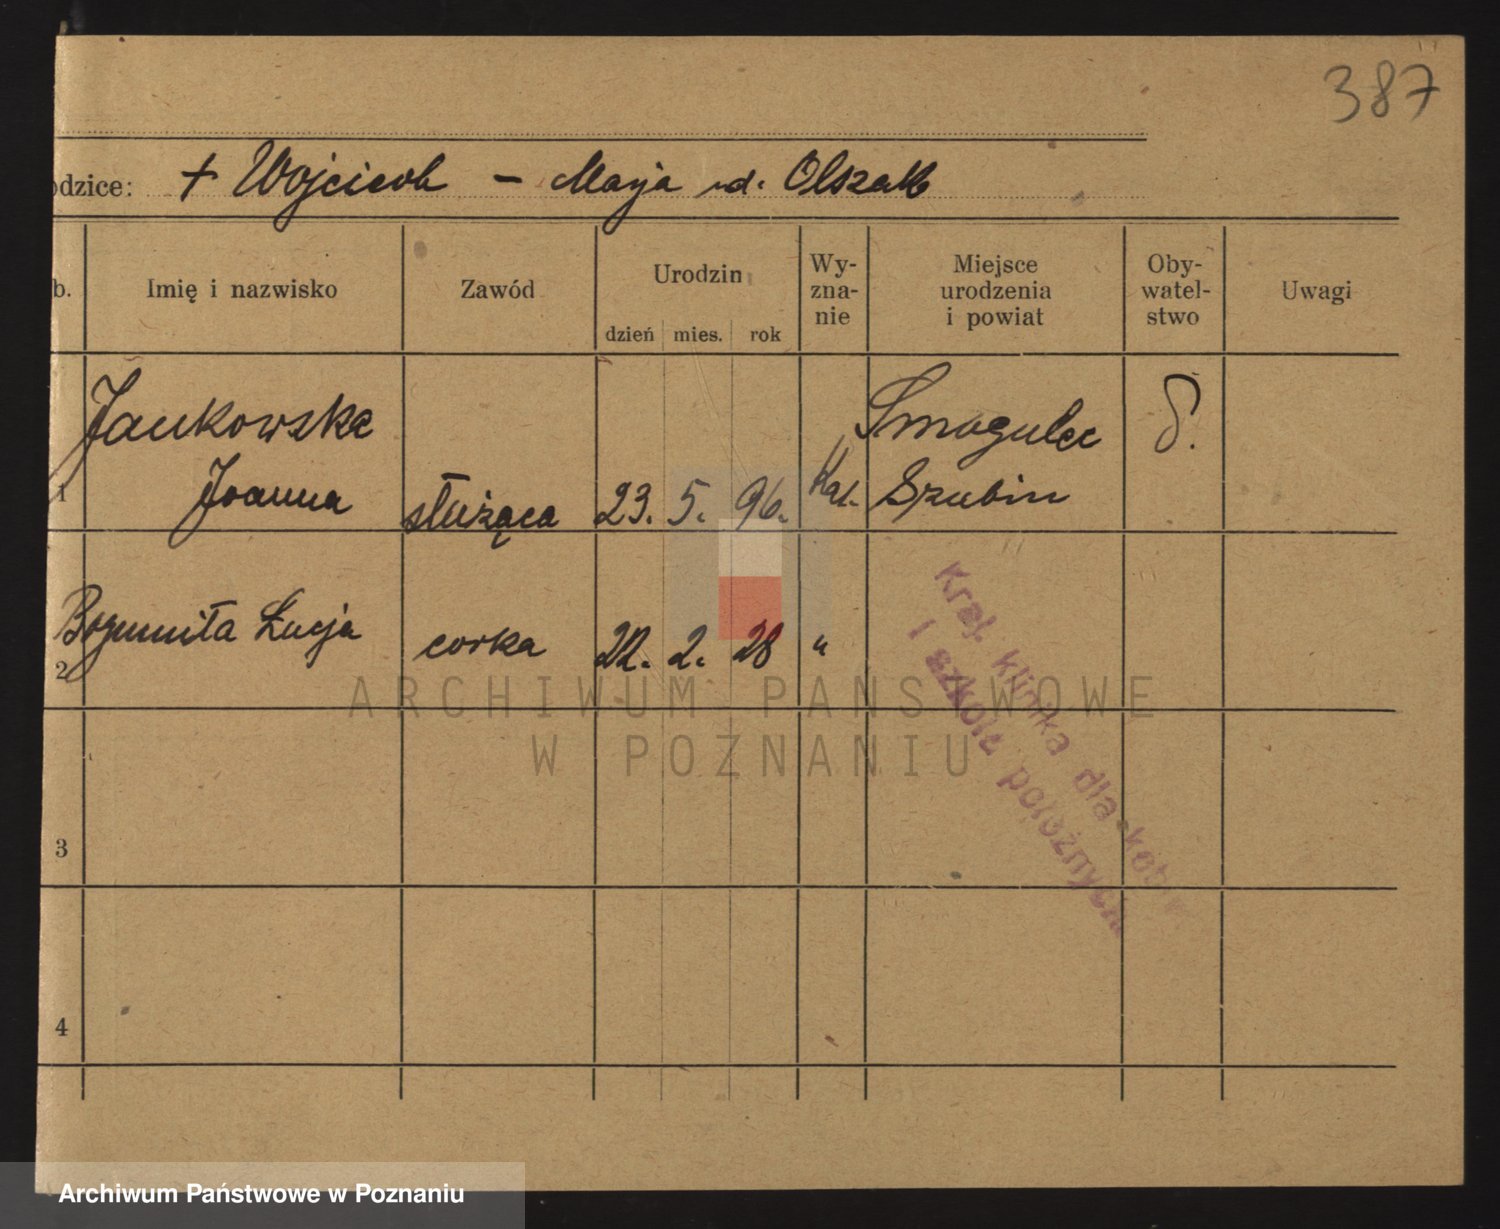 387
odzice: + Wojciech - Marja ud. Olszak
b. Imię i nazwisko Zawód Urodzin dzień mies. rok Wy-zna-nie Miejsce urodzenia i powiat Oby-watel-stwo Uwagi
Jankowska Smogulec
1 Joanna służąca 23. 5. 96. Kat. Szubin
Bogumiła Łucja corka 22. 2. 28 "
2
3
4
Kraj. klinika dla kobiet
i szkoła położnych
ARCHIWUM PAŃSTWOWE
W POZNANIU
Archiwum Państwowe w Poznaniu